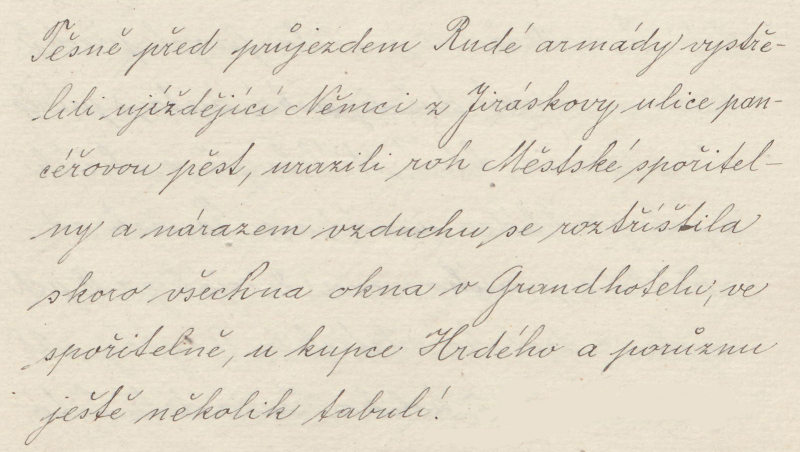 Těsně před průjezdem Rudé armády vystře-
lili ujíždějící Němci z Jiráskovy ulice pan-
céřovou pěst, urazili roh Městské spořitel-
ny a nárazem vzduchu se roztříštila
skoro všechna okna v Grandhotelu, ve
spořitelně, u kupce Hrdého a porůznu
ještě několik tabulí.